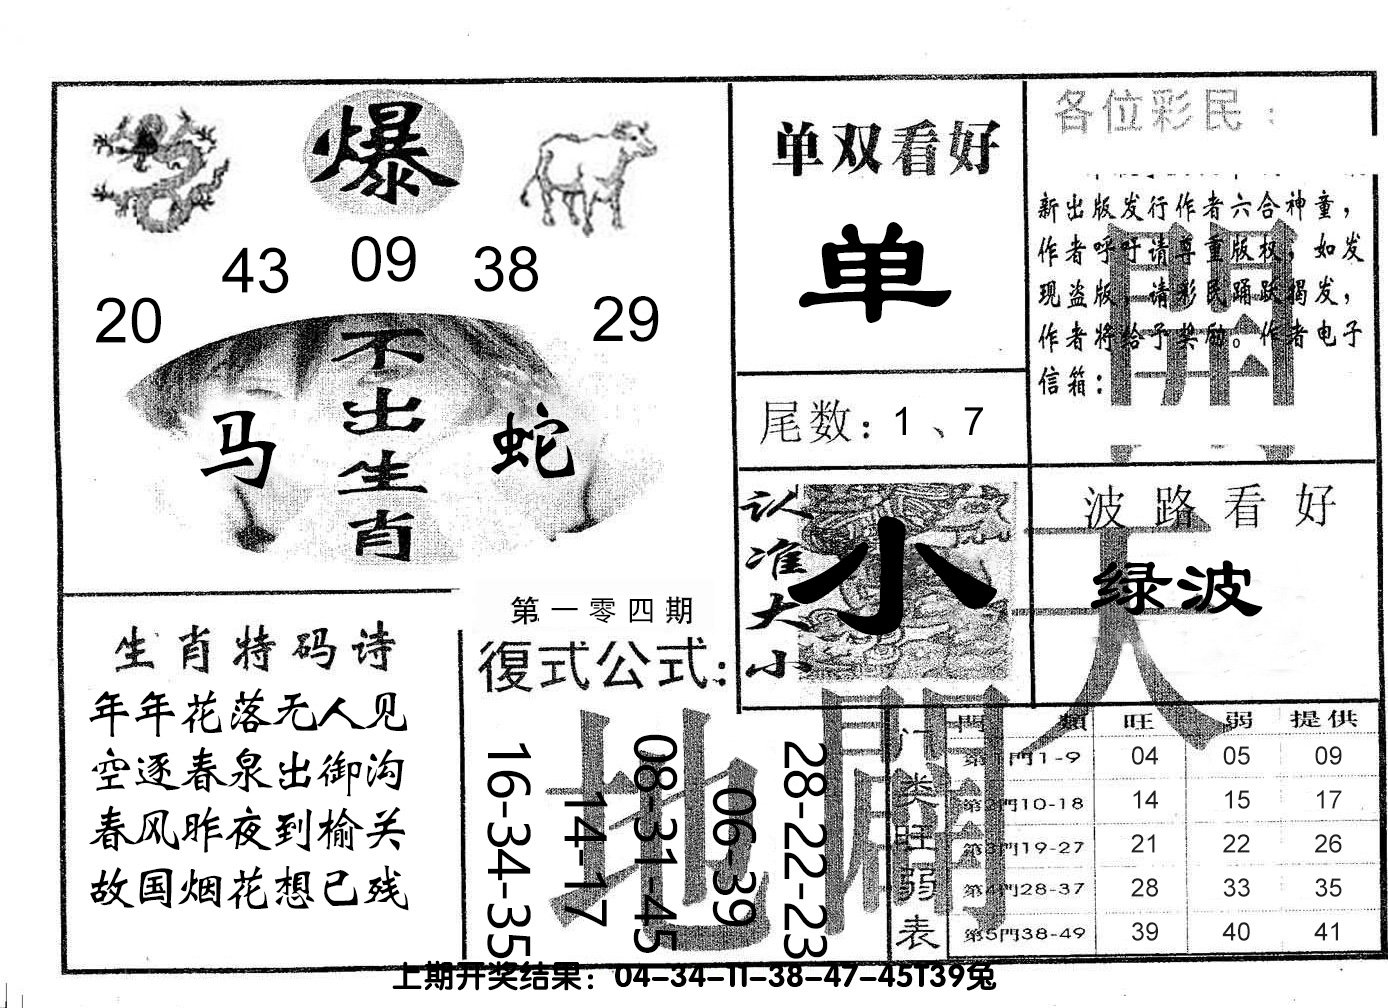 爆
20 43 09 38 29
不出生肖
马 蛇
单双看好
单
尾数：1、7
各位彩民：
新出版发行作者六合神童，
作者呼吁请尊重版权，如发
现盗版，请彩民踊跃揭发，
作者将给予奖励。作者电子
信箱：
開
认准大小
小
波路看好
绿波
天
生肖特码诗
年年花落无人见
空逐春泉出御沟
春风昨夜到榆关
故国烟花想已残
第一零四期
復式公式：
16-34-35
14-17
08-31-45
06-39
28-22-23
地
門类旺弱表
門 類 旺 弱 提供
第1門1-9 04 05 09
第2門10-18 14 15 17
第3門19-27 21 22 26
第4門28-37 28 33 35
第5門38-49 39 40 41
上期开奖结果：04-34-11-38-47-45T39兔